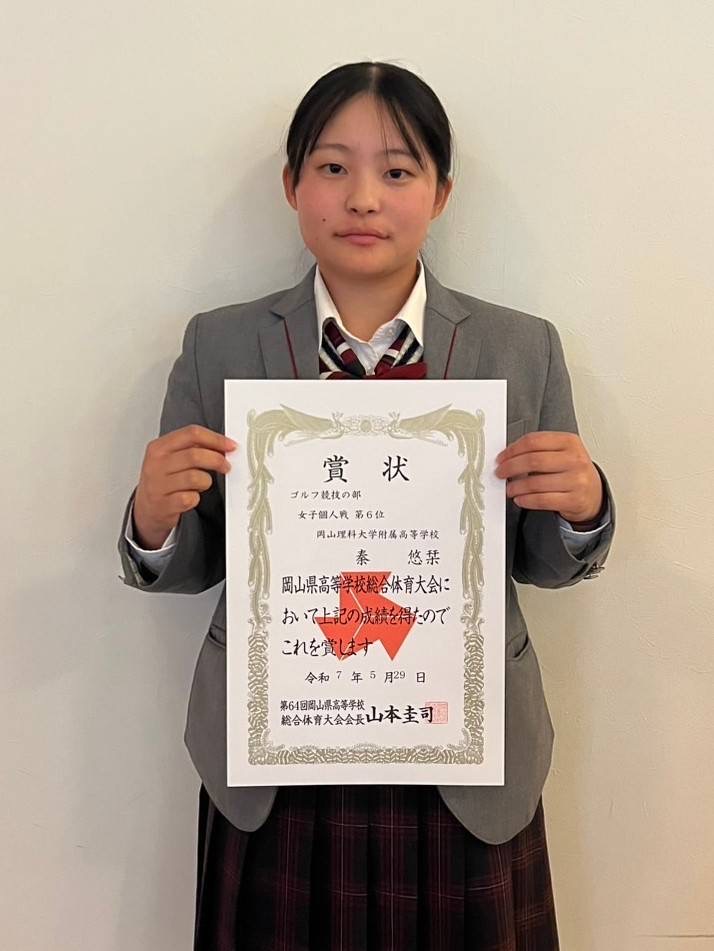 賞状
ゴルフ競技の部
女子個人戦 第6位
岡山理科大学附属高等学校
秦 悠栞
岡山県高等学校総合体育大会に
おいて上記の成績を得たので
これを賞します
令和7年5月29日
第64回岡山県高等学校
総合体育大会会長 山本圭司